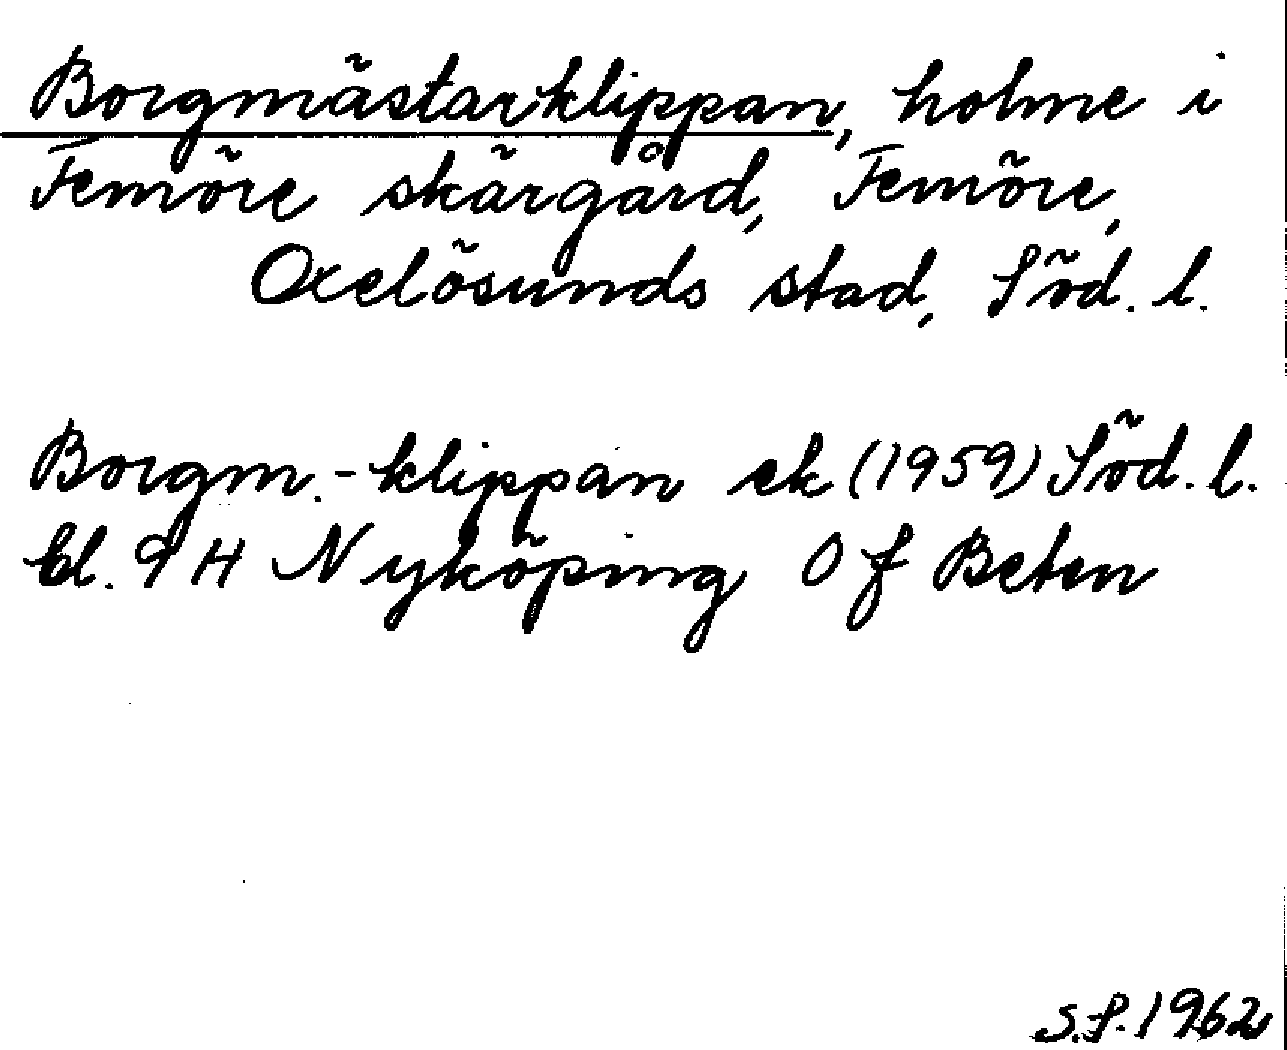 Borgmästarklippan, holme i
Femöre skärgård, Femöre,
Oxelösunds stad, Söd. l.
Borgm.-klippan ek (1959) Söd. l.
bl. 9 H Nyköping Of Beten
S.S. 1962